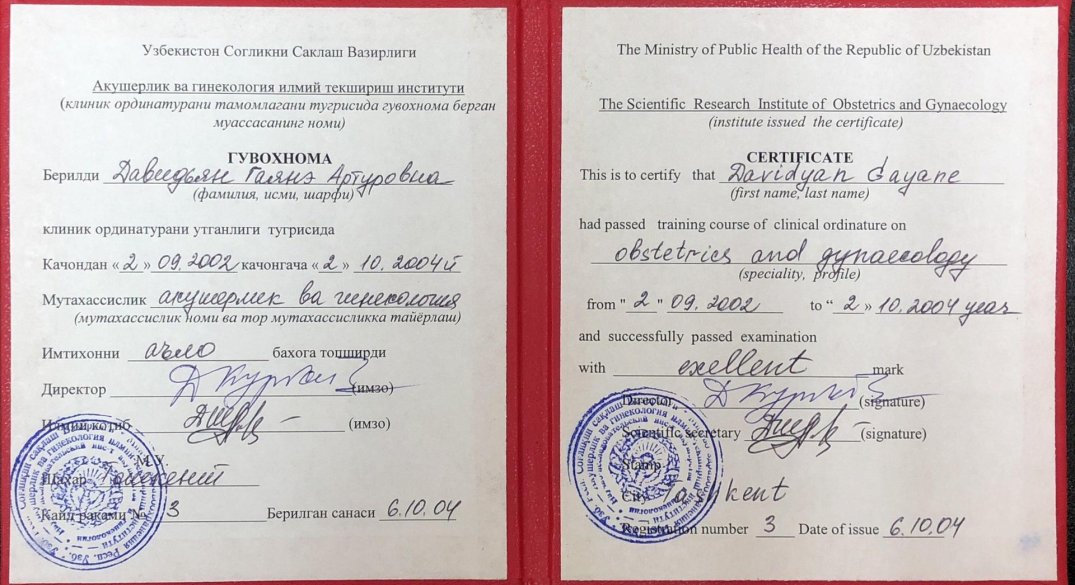 Узбекистон Согликни Саклаш Вазирлиги
Акушерлик ва гинекология илмий текшириш институти
(клиник ординатурани тамомлагани тугрисида гувохнома берган
муассасанинг номи)
ГУВОХНОМА
Берилди Давидьян Гаянэ Артуровна
(фамилия, исми, шарфи)
клиник ординатурани утганлиги тугрисида
Качондан «2» 09.2002 качонгача «2» 10.2004й
Мутахассислик акушерлик ва гинекология
(мутахассислик номи ва тор мутахассисликка тайёрлаш)
Имтихонни аъло бахога топширди
Директор (имзо)
Илмий котиб (имзо)
М.У.
Шахар
Кайд раками № 3 Берилган санаси 6.10.04
The Ministry of Public Health of the Republic of Uzbekistan
The Scientific Research Institute of Obstetrics and Gynaecology
(institute issued the certificate)
CERTIFICATE
This is to certify that Davidyan Gayane
(first name, last name)
had passed training course of clinical ordinature on
obstetrics and gynaecology
(speciality, profile)
from "2" 09.2002 to “2» 10.2004 year
and successfully passed examination
with exellent mark
Director (signature)
Scientific secretary (signature)
Stamp
City
Registration number 3 Date of issue 6.10.04